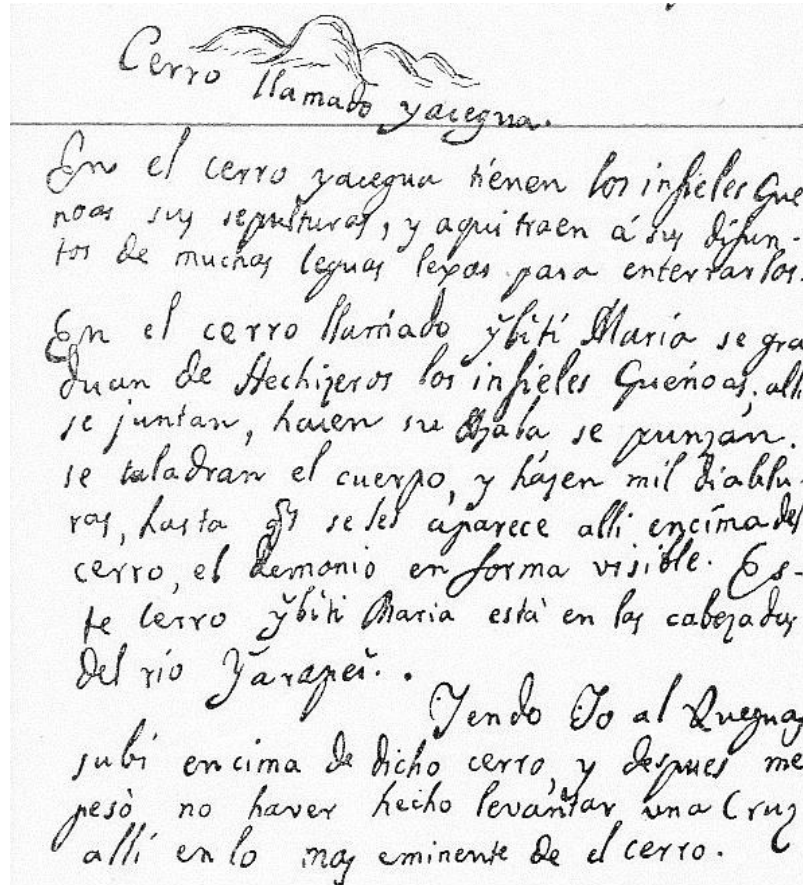 Cerro llamado yacegua.
En el cerro yacegua tienen los infieles Gue
noas sus sepulturas, y aqui traen á sus difun-
tos de muchas leguas lexos para enterrarlos.
En el cerro llamado ỹbĭtí Maria se gra
duan de Hechizeros los infieles Gueñoas, alli
se juntan, hacen su se punzan.
se taladran el cuerpo, y házen mil diablu-
ras, hasta se les aparece alli encima del
cerro, el demonio en forma visible. Es-
te Cerro ỹbĭti Maria está en las cabezadas
del rio
Yendo Yo al Queguay
subi encima de dicho cerro, y despues me
pesó no haver hecho levantar una Cruz
allí en lo mas eminente de el cerro.